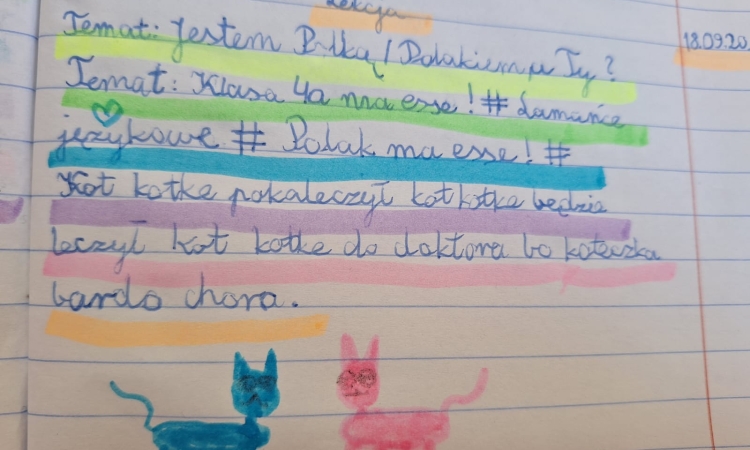 Lekcja
18.09.20
Temat: Jestem Polką / Polakiem, a Ty?
Temat: Klasa 4a ma esse! # łamańce
językowe # Polak ma esse! #
Kot kotkę pokaleczył kot kotkę będzie
leczył kot kotkę do doktora bo koteczka
bardo chora.